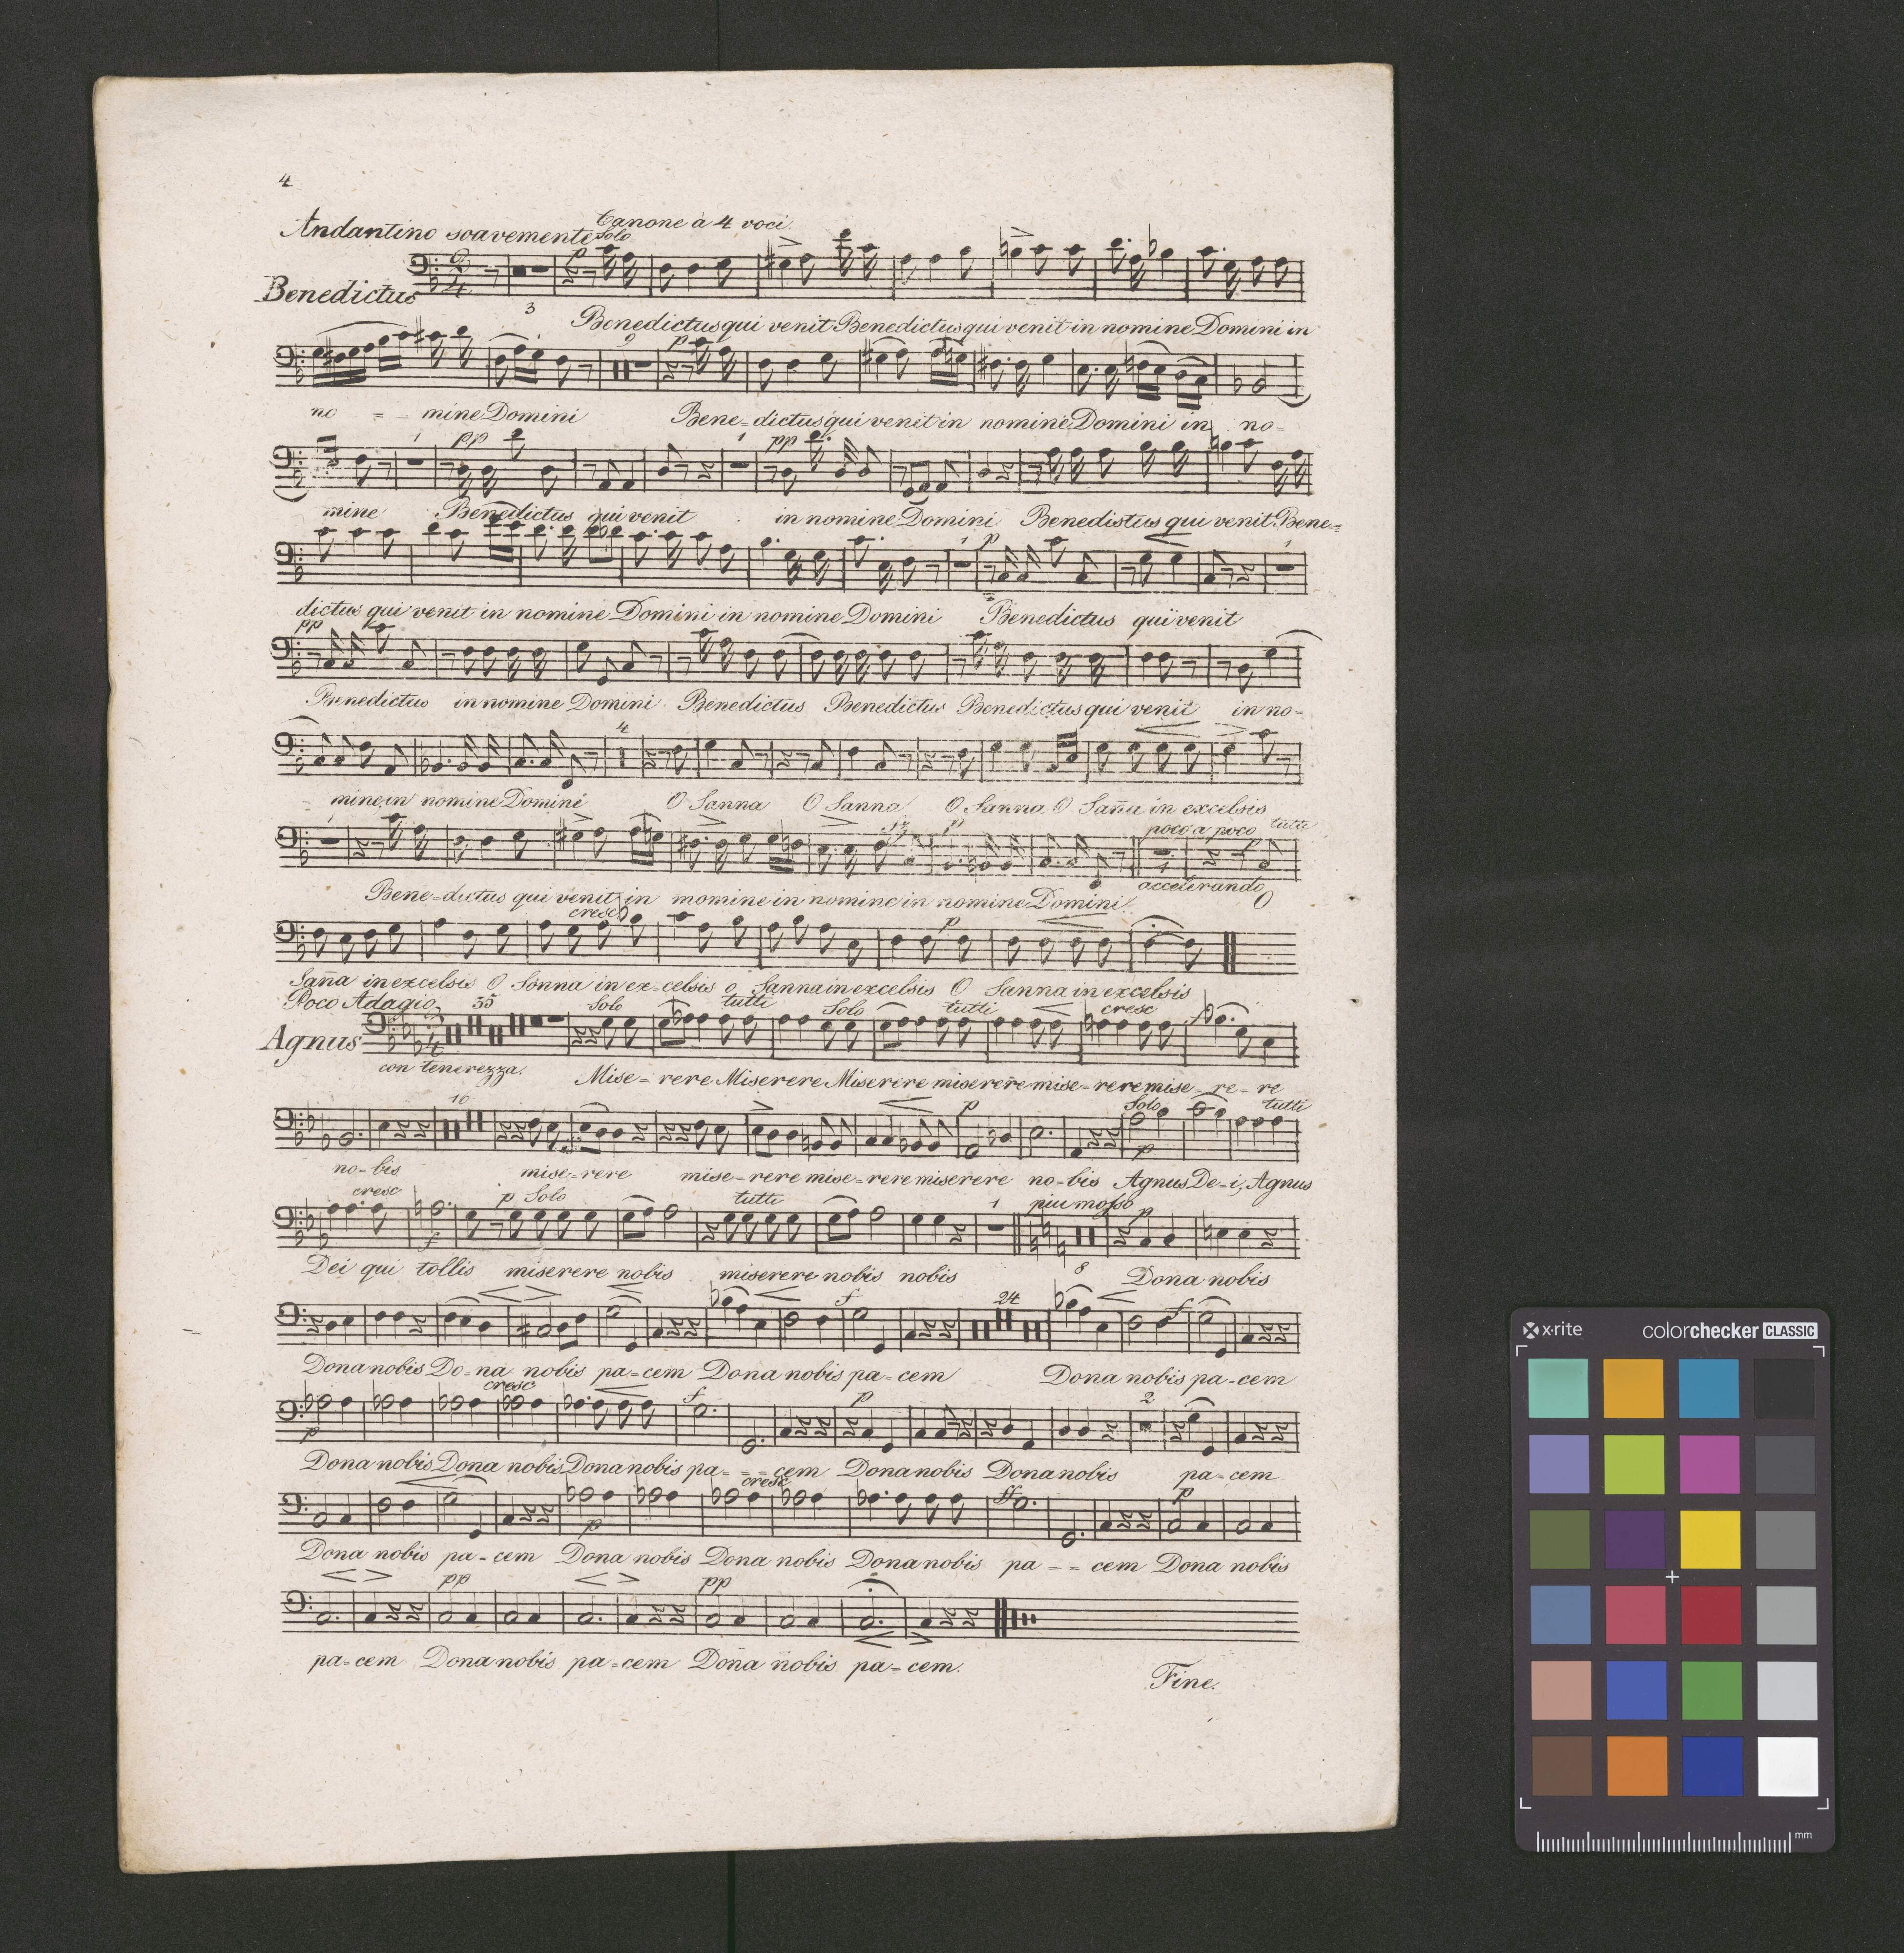 4
Andantino soavemente Solo Canone à 4 voci.
p
Benedictus 2/4
3
Benedictus qui venit Benedictus qui venit in nomine Domini in
9 p
no = - mine Domini Bene = dictus qui venit in nomine Domini in no =
1 pp 1 pp
mine Benedictus qui venit in nomine Domini Benedistus qui venit Bene =
1 p 1
dictus qui venit in nomine Domini in nomine Domini Benedictus qui venit
pp
Benedictus in nomine Domini Benedictus Benedictus Benedictus qui venit in no =
4
mine in nomine Domini O Sanna O Sanna O Sanna O San̄a in excelsis
1 fz p poco a poco tutti
accelerando
Bene = dictus qui venit in momine in nomine in nomine Domini O
cresc p
San̄a in excelsis O Sonna in ex = celsis o Sanna in excelsis O Sanna in excelsis
Poco Adagio 35 Solo tutti Solo tutti cresc f
Agnus 3/4
con tenerezza.
Mise = rere Miserere Miserere miserere mise = rere mise = re = re
10 p Solo tutti
p
no = bis mise = rere mise = rere mise = rere miserere no = bis Agnus De = i, Agnus
cresc p Solo tutti 1 piu mosso p
f 8
Dei qui tollis miserere nobis miserere nobis nobis Dona nobis
f 24 f
Dona nobis Do = na nobis pa = cem Dona nobis pa = cem Dona nobis pa = cem
cresc f p 2
p
Dona nobis Dona nobis Dona nobis pa = = = cem Dona nobis Dona nobis pa = cem
cresc ff p
p
Dona nobis pa = cem Dona nobis Dona nobis Dona nobis pa = = cem Dona nobis
pp pp
pa = cem Dona nobis pa = cem Dona nobis pa = cem.
Fine.
x·rite colorchecker CLASSIC
mm